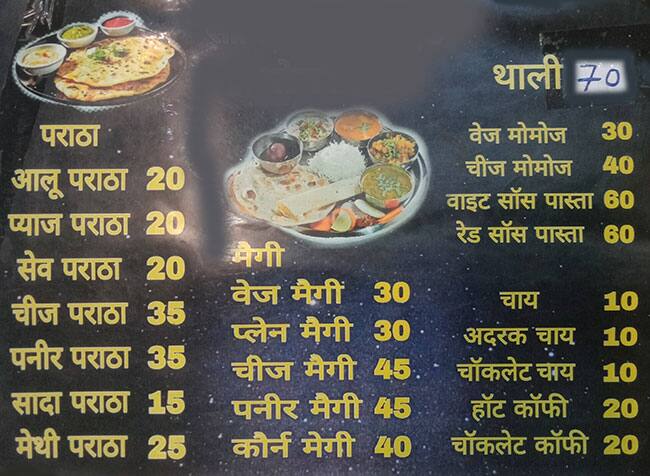 पराठा
आलू पराठा 20
प्याज पराठा 20
सेव पराठा 20
चीज पराठा 35
पनीर पराठा 35
सादा पराठा 15
मेथी पराठा 25
मैगी
वेज मैगी 30
प्लेन मैगी 30
चीज मैगी 45
पनीर मैगी 45
कौर्न मेगी 40
थाली 70
वेज मोमोज 30
चीज मोमोज 40
वाइट सॉस पास्ता 60
रेड सॉस पास्ता 60
चाय 10
अदरक चाय 10
चॉकलेट चाय 10
हॉट कॉफी 20
चॉकलेट कॉफी 20